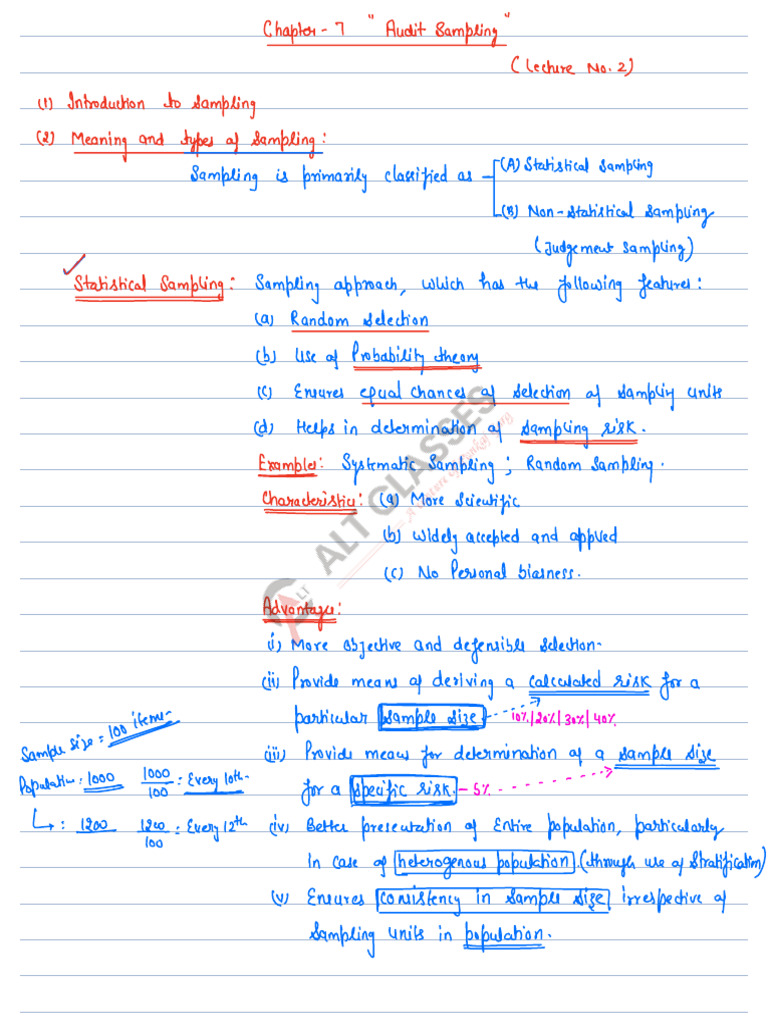 Chapter - 7 " Audit Sampling "
( Lecture No. 2)
(1) Introduction to Sampling
(2) Meaning and types of Sampling :
Sampling is primarily classified as
(A) Statistical Sampling
(B) Non-Statistical Sampling
(Judgement Sampling)
Statistical Sampling : Sampling approach, which has the following features :
(a) Random Selection
(b) Use of Probability theory
(c) Ensures equal chances of selection of Sampling units
(d) Helps in determination of Sampling risk.
Examples : Systematic Sampling ; Random Sampling.
Characteristics : (a) More Scientific
(b) Widely accepted and applied
(c) No Personal biasness.
ALT CLASSES
Advantages :
(i) More objective and defensible selection.
(ii) Provide means of deriving a calculated risk for a
particular Sample size 10% | 20% | 30% | 40%
(iii) Provide means for determination of a sample size
for a specific risk. - 5%
Sample size = 100 items
Population = 1000 1000/100 = Every 10th
: 1200 1200/100 = Every 12th
(iv) Better presentation of Entire population, particularly
in case of heterogenous population. (through use of Stratification)
(v) Ensures consistency in sample size irrespective of
Sampling units in population.